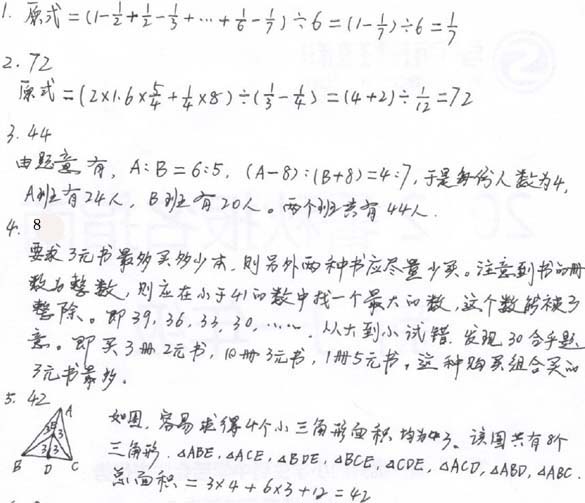 1. 原式=(1-1/2+1/2-1/3+⋯+1/6-1/7)÷6=(1-1/7)÷6=1/7
2. 72
原式=(2×1.6×5/4+1/4×8)÷(1/3-1/4)=(4+2)÷1/12=72
3. 44
由题意有, A:B=6:5, (A-8):(B+8)=4:7, 于是每份人数为4,
A班有24人, B班有20人。两个班共有44人.
4. 8
要求3元书最多买多少本, 则另外两种书应尽量少买。注意到书的册
数为整数, 则应在小于41的数中找一个最大的数, 这个数能被3
整除。即39, 36, 33, 30, ⋯⋯. 从大到小试错. 发现30合乎题
意。即买3册2元书, 10册3元书, 1册5元书, 这种购买组合买的
3元书最多.
5. 42
A
3 E 3
3 3
B D C
如图, 容易求得4个小三角形面积均为3。该图共有8个
三角形. △ABE, △ACE, △BDE, △BCE, △CDE, △ACD, △ABD, △ABC.
总面积=3×4+6×3+12=42